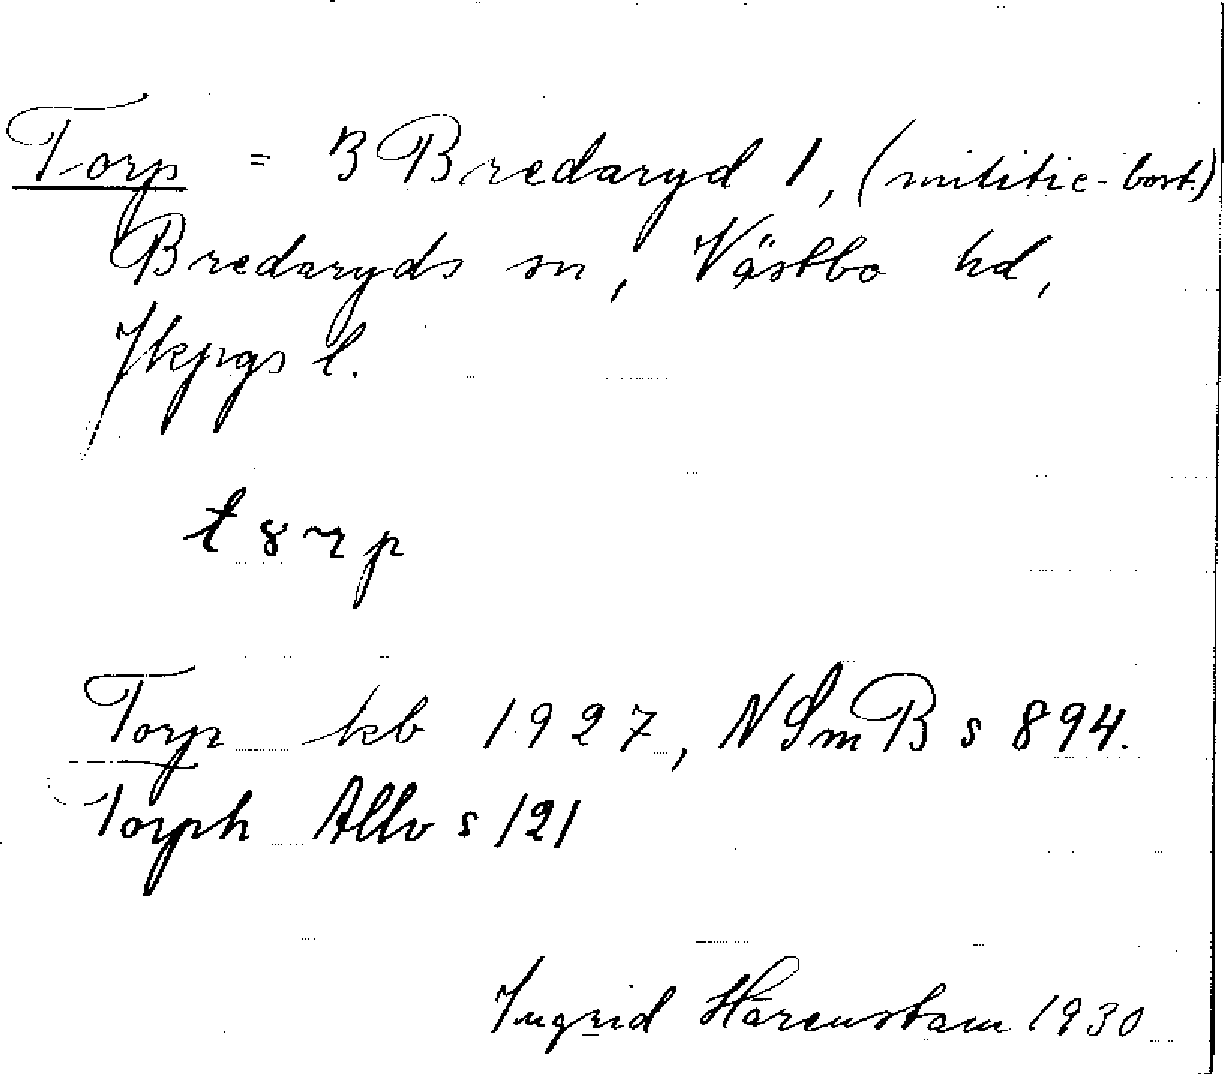 Torp = 3 Bredaryd 1, (militie-bost.)
Bredaryds sn, Västbo hd,
Jkpgs l.
t 8 r p
Torp kb 1927, NSmB s 894.
Torph Allv s 121
Ingrid Härenstam 1930